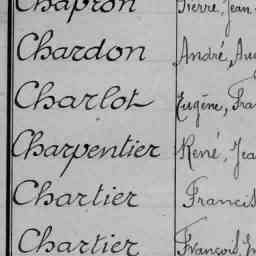 Chapron Pierre, Jean
Chardon André, Aug
Charlot Eugène, Fra
Charpentier René, Jea
Chartier Francis
Chartier François,